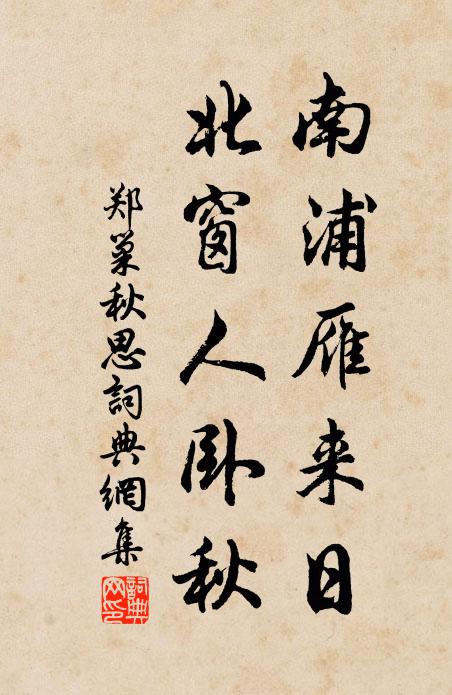 南浦雁来日
北窗人卧秋
郑巢秋思詞典網集
詞典
网印